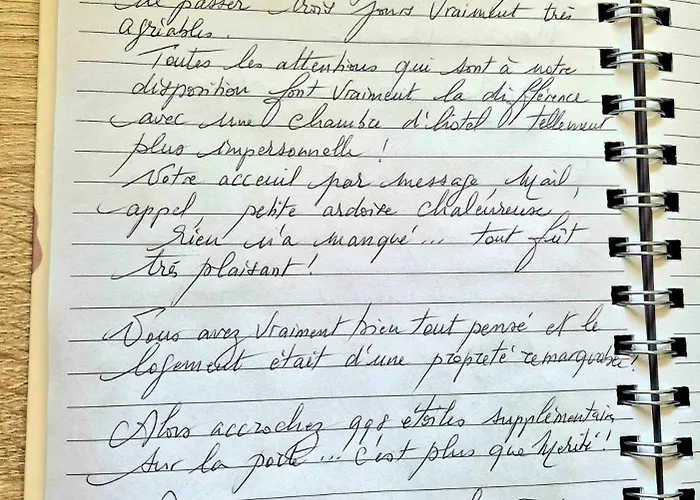 de passer trois jours vraiment très
agréables.
Toutes les attentions qui sont à notre
disposition font vraiment la différence
avec une chambre d'hôtel tellement
plus impersonnelle !
Votre acceuil par message, Mail,
appel, petite ardoise chaleureuse,
Rien n'a manqué... tout fût
très plaisant !
Vous avez vraiment bien tout pensé et le
logement était d'une propreté remarquable !
Alors accrochez 998 étoiles supplémentaires
sur la porte... c'est plus que Mérité !